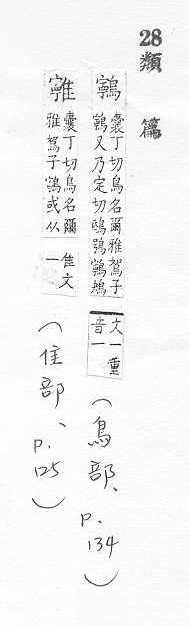 28 類篇
鸋
囊丁切鳥名爾雅鴽子
鸋又乃定切鴟鴞鸋鴂
文一重
音一
(鳥部、p.134)
囊丁切鳥名爾
雅鴽子鸋或从
隹文
一
(隹部、p.125)